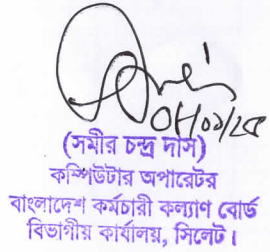 (সমীর চন্দ্র দাস)
কম্পিউটার অপারেটর
বাংলাদেশ কর্মচারী কল্যাণ বোর্ড
বিভাগীয় কার্যালয়, সিলেট।